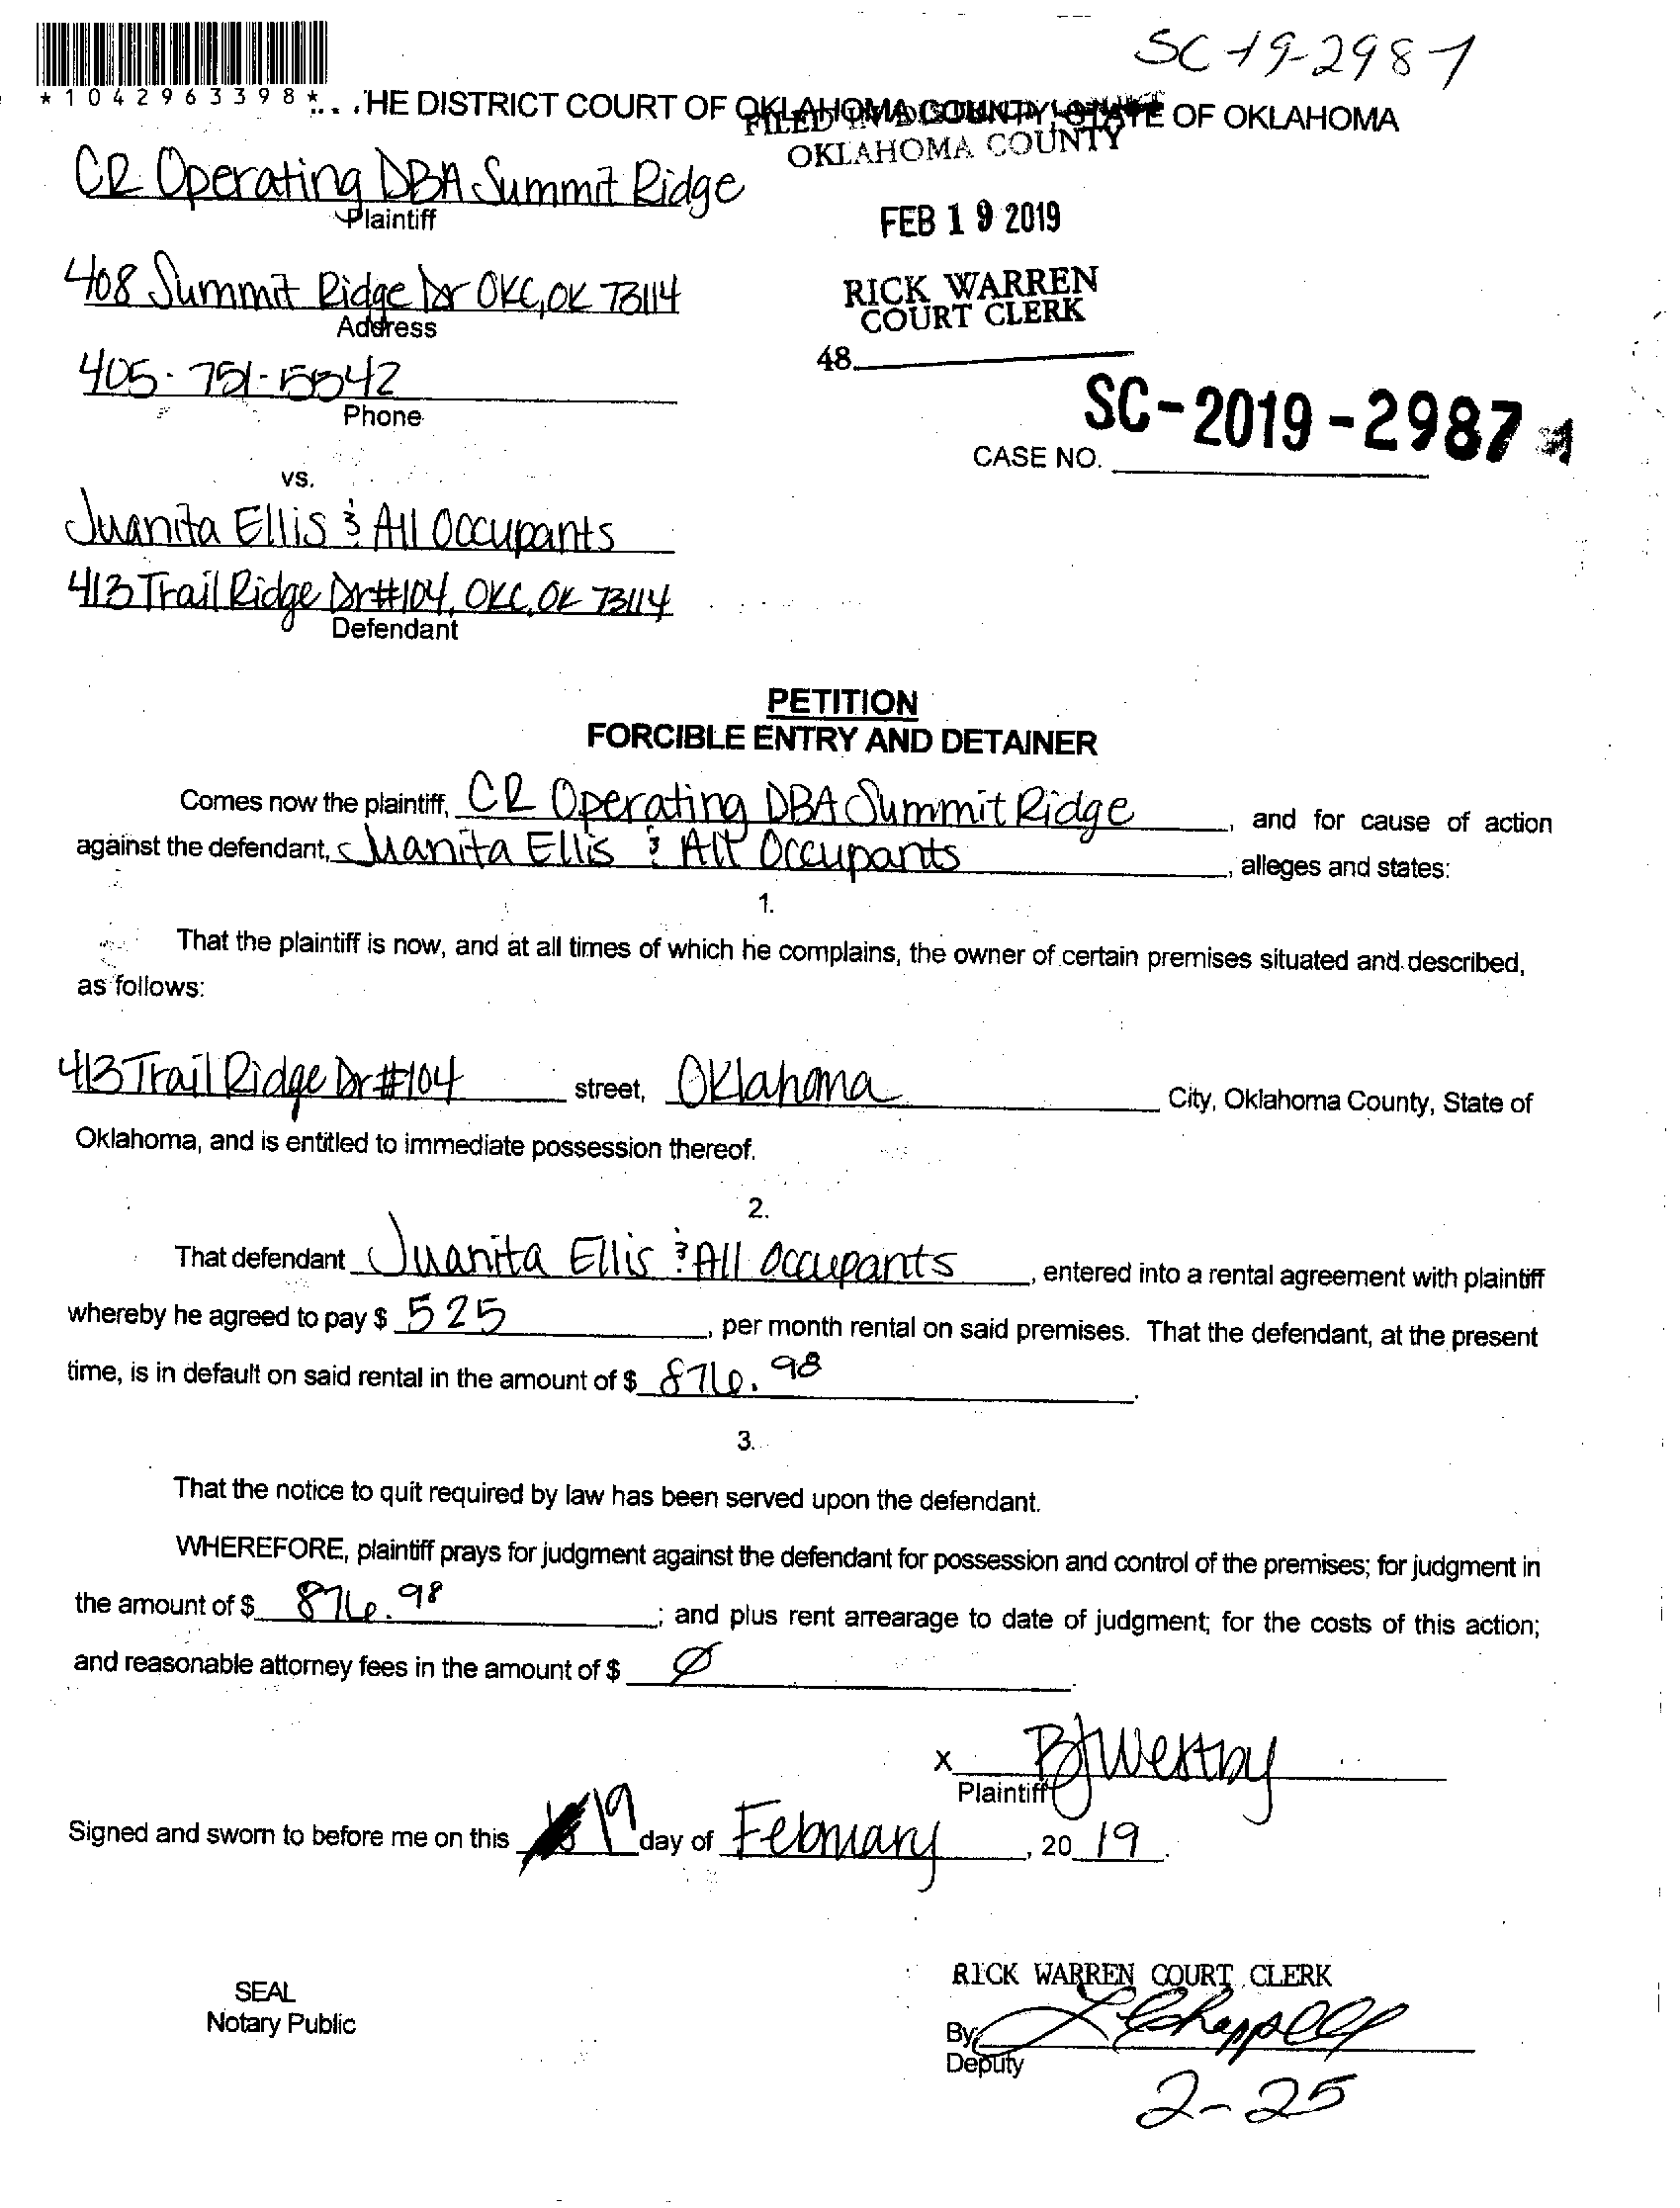 SC-19-2987
*1042963398*
THE DISTRICT COURT OF OKLAHOMA COUNTY, STATE OF OKLAHOMA
FILED IN DISTRICT COURT
OKLAHOMA COUNTY
CR Operating DBA Summit Ridge
Plaintiff
FEB 19 2019
408 Summit Ridge Dr OKC, OK 73114
Address
RICK WARREN
COURT CLERK
48
405-751-5542
Phone
SC-2019-2987
CASE NO.
vs.
Juanita Ellis & All Occupants
413 Trail Ridge Dr #104, OKC, OK 73114
Defendant
PETITION
FORCIBLE ENTRY AND DETAINER
Comes now the plaintiff, CR Operating DBA Summit Ridge, and for cause of action
against the defendant, Juanita Ellis & All Occupants, alleges and states:
1.
That the plaintiff is now, and at all times of which he complains, the owner of certain premises situated and described,
as follows:
413 Trail Ridge Dr #104 street, Oklahoma City, Oklahoma County, State of
Oklahoma, and is entitled to immediate possession thereof.
2.
That defendant Juanita Ellis & All Occupants, entered into a rental agreement with plaintiff
whereby he agreed to pay $ 525, per month rental on said premises. That the defendant, at the present
time, is in default on said rental in the amount of $ 876.98.
3.
That the notice to quit required by law has been served upon the defendant.
WHEREFORE, plaintiff prays for judgment against the defendant for possession and control of the premises; for judgment in
the amount of $ 876.98; and plus rent arrearage to date of judgment; for the costs of this action;
and reasonable attorney fees in the amount of $ Ø.
x BJWestby
Plaintiff
Signed and sworn to before me on this 19 day of February, 20 19.
SEAL
Notary Public
RICK WARREN COURT CLERK
By Chappell
Deputy
2-25